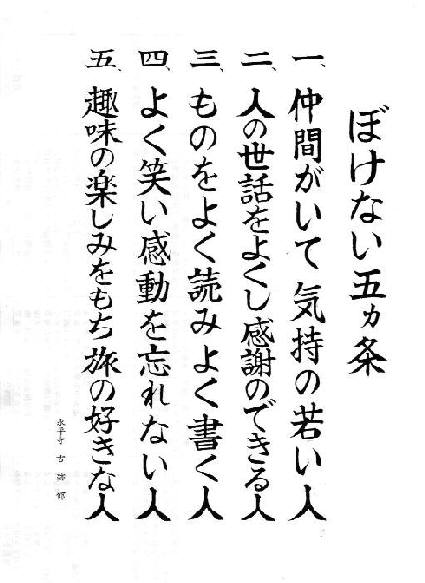 ぼけない五カ条
一、仲間がいて気持の若い人
二、人の世話をよくし感謝のできる人
三、ものをよく読みよく書く人
四、よく笑い感動を忘れない人
五、趣味の楽しみをもち旅の好きな人
永平寺